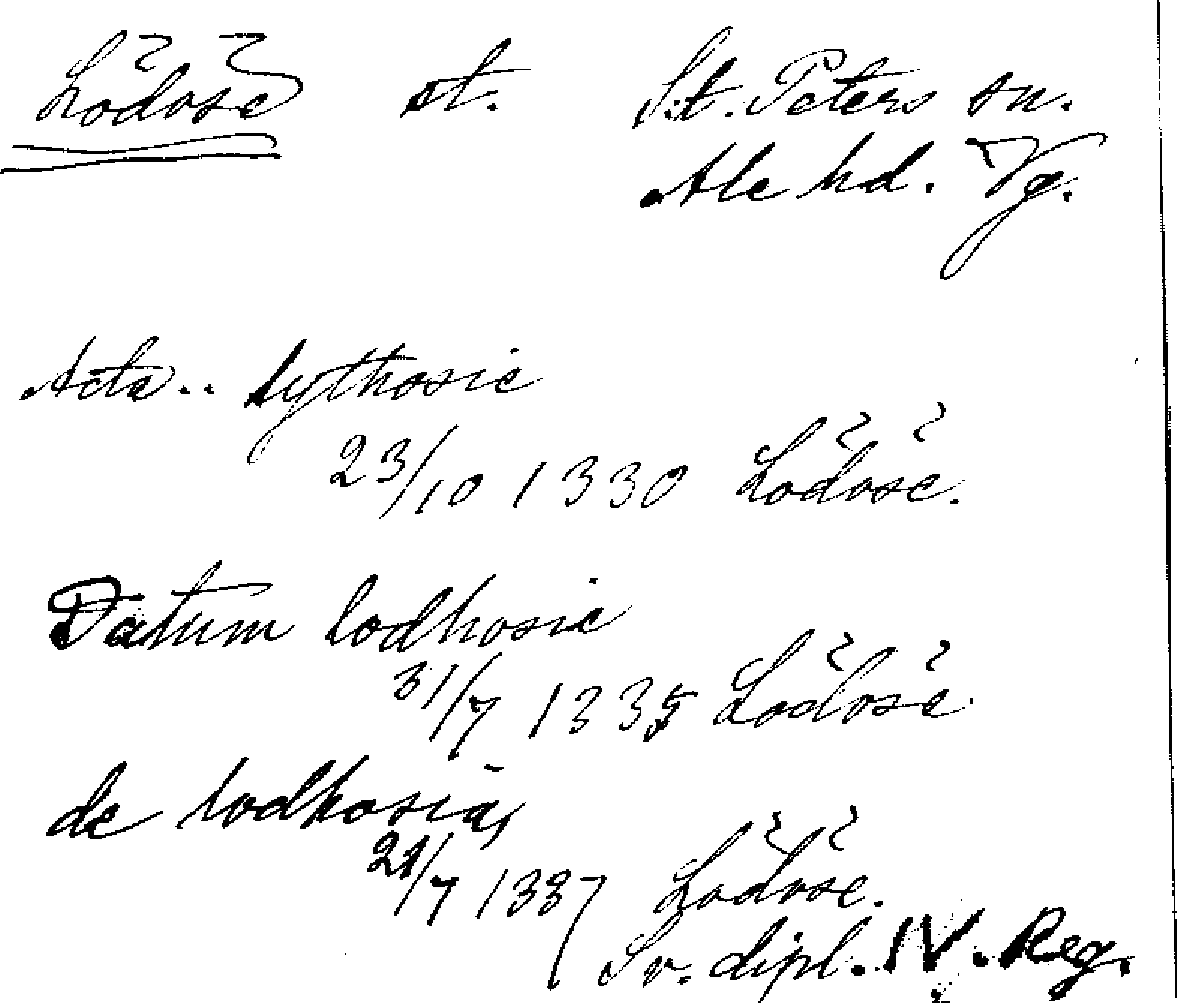 Lödöse st. St. Peters sn.
Ale hd. Vg.
Acta .. lythosie
23/10 1330 Lödöse.
Datum lodhosie
31/7 1335 Lödöse
de lodhosia,
21/7 1337 Lödöse.
Sv. dipl. IV. Reg.